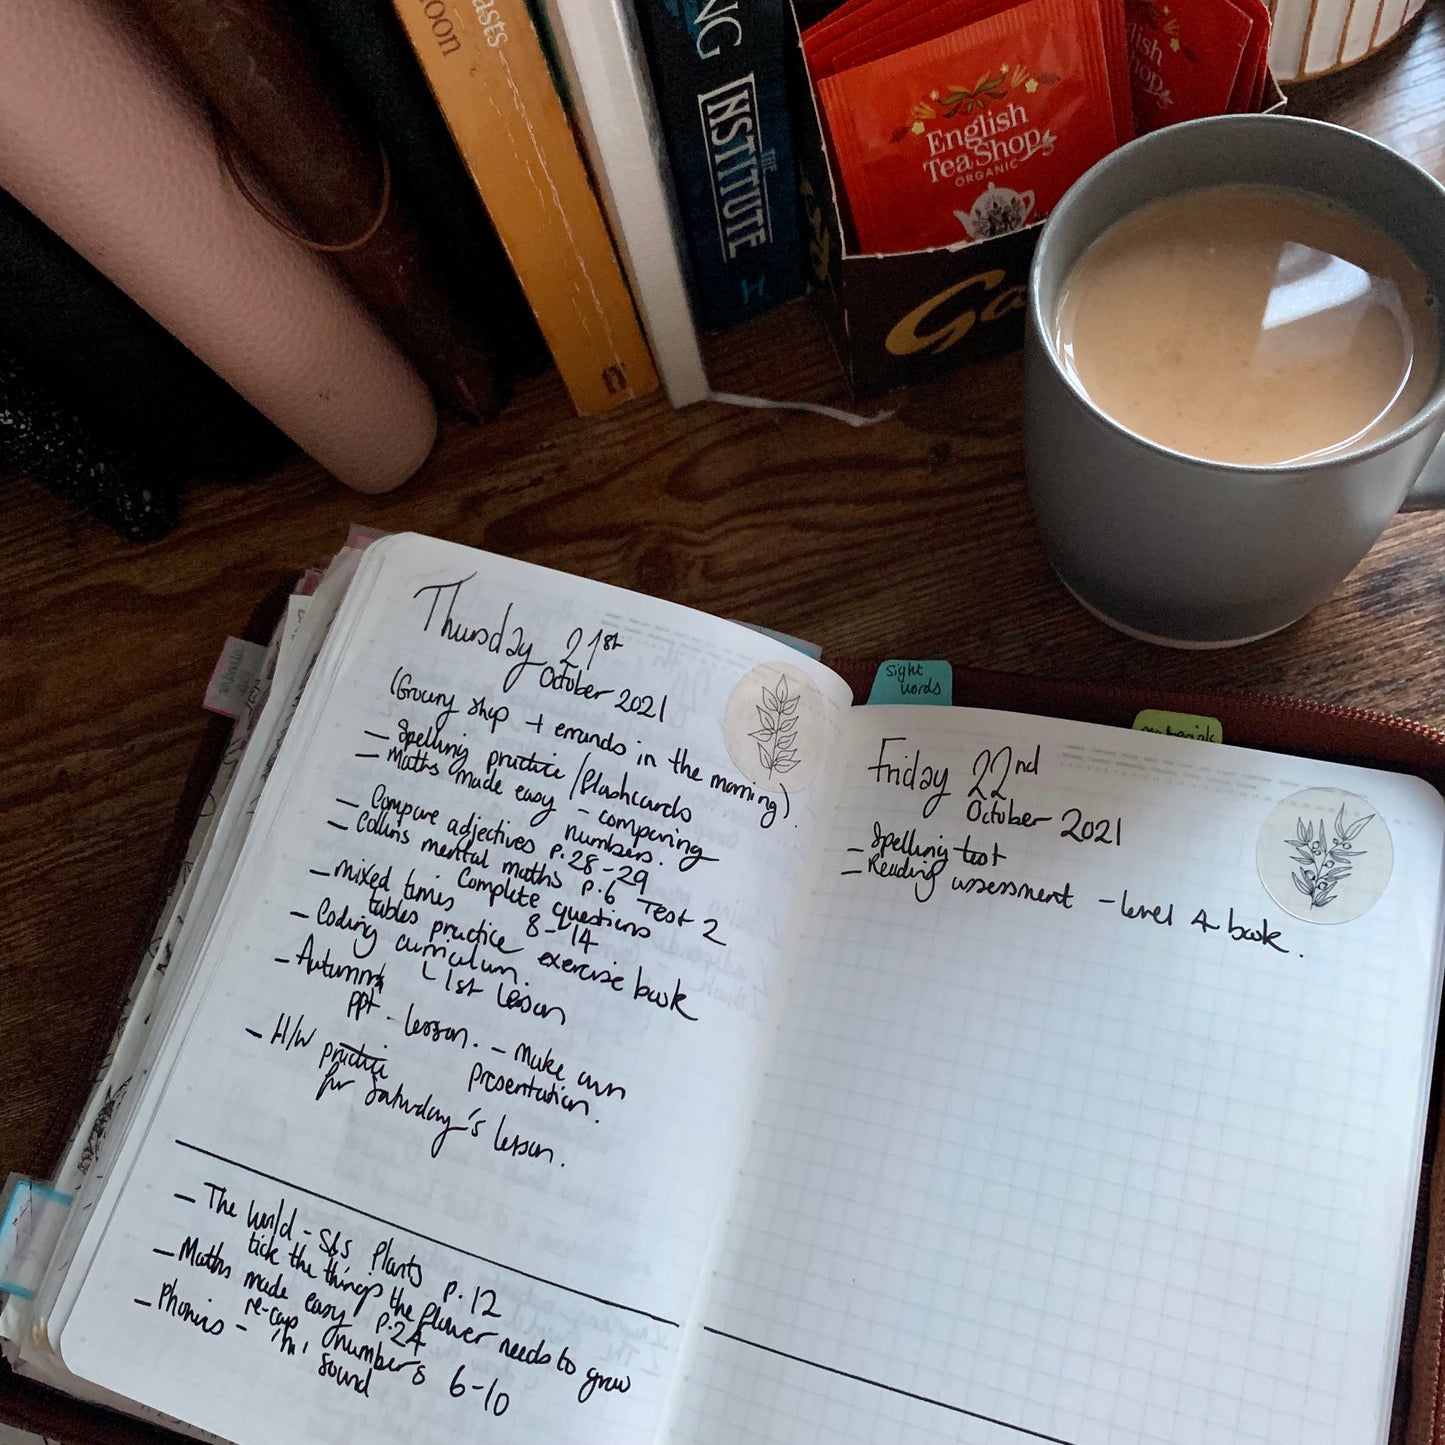 asts
oon
NG
THE
INSTITUTE
H
English
Tea Shop
ORGANIC
lish
Shop
Ga
Thursday 21st
October 2021
(Grocery shop + errands in the morning).
- Spelling practice / flashcards
- Maths made easy - comparing
numbers.
- Compare adjectives p.28-29
- Collins mental maths p.6 Test 2
Complete questions
8-14
- mixed times
tables practice exercise book
- Coding curriculum.
L 1st lesson
- Autumn
ppt - lesson. - Make own
presentation.
- H/W practice
for Saturday's lesson.
- The World - S&S Plants p.12
tick the things the flower needs to grow
- Maths made easy p.24
re-cap numbers 6-10
- Phonics - 'm'
sound
sight
words
materials
Friday 22nd
October 2021
- Spelling test
- Reading assessment - level 4 book.